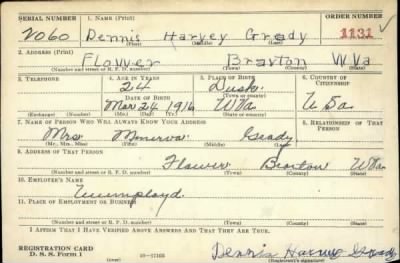 SERIAL NUMBER 1. NAME (Print) ORDER NUMBER
2060 Dennis Harvey Grady 1131
(First) (Middle) (Last)
2. ADDRESS (Print)
Flower Braxton W Va
(Number and street or R. F. D. number) (Town) (County) (State)
3. TELEPHONE 4. AGE IN YEARS 5. PLACE OF BIRTH 6. COUNTRY OF CITIZENSHIP
24 Dusk
DATE OF BIRTH (Town or county)
Mar 24 1916 W Va U Sa
(Exchange) (Number) (Mo.) (Day) (Yr.) (State or country)
7. NAME OF PERSON WHO WILL ALWAYS KNOW YOUR ADDRESS 8. RELATIONSHIP OF THAT PERSON
Mrs Minerva Grady
(Mr., Mrs., Miss) (First) (Middle) (Last)
9. ADDRESS OF THAT PERSON
Flower Braxton W Va
(Number and street or R. F. D. number) (Town) (County) (State)
10. EMPLOYER'S NAME
Unemployd.
11. PLACE OF EMPLOYMENT OR BUSINESS
(Number and street or R. F. D. number) (Town) (County) (State)
I AFFIRM THAT I HAVE VERIFIED ABOVE ANSWERS AND THAT THEY ARE TRUE.
REGISTRATION CARD
D. S. S. Form 1 16—17105 Dennis Harvey Grady
(Registrant's signature)